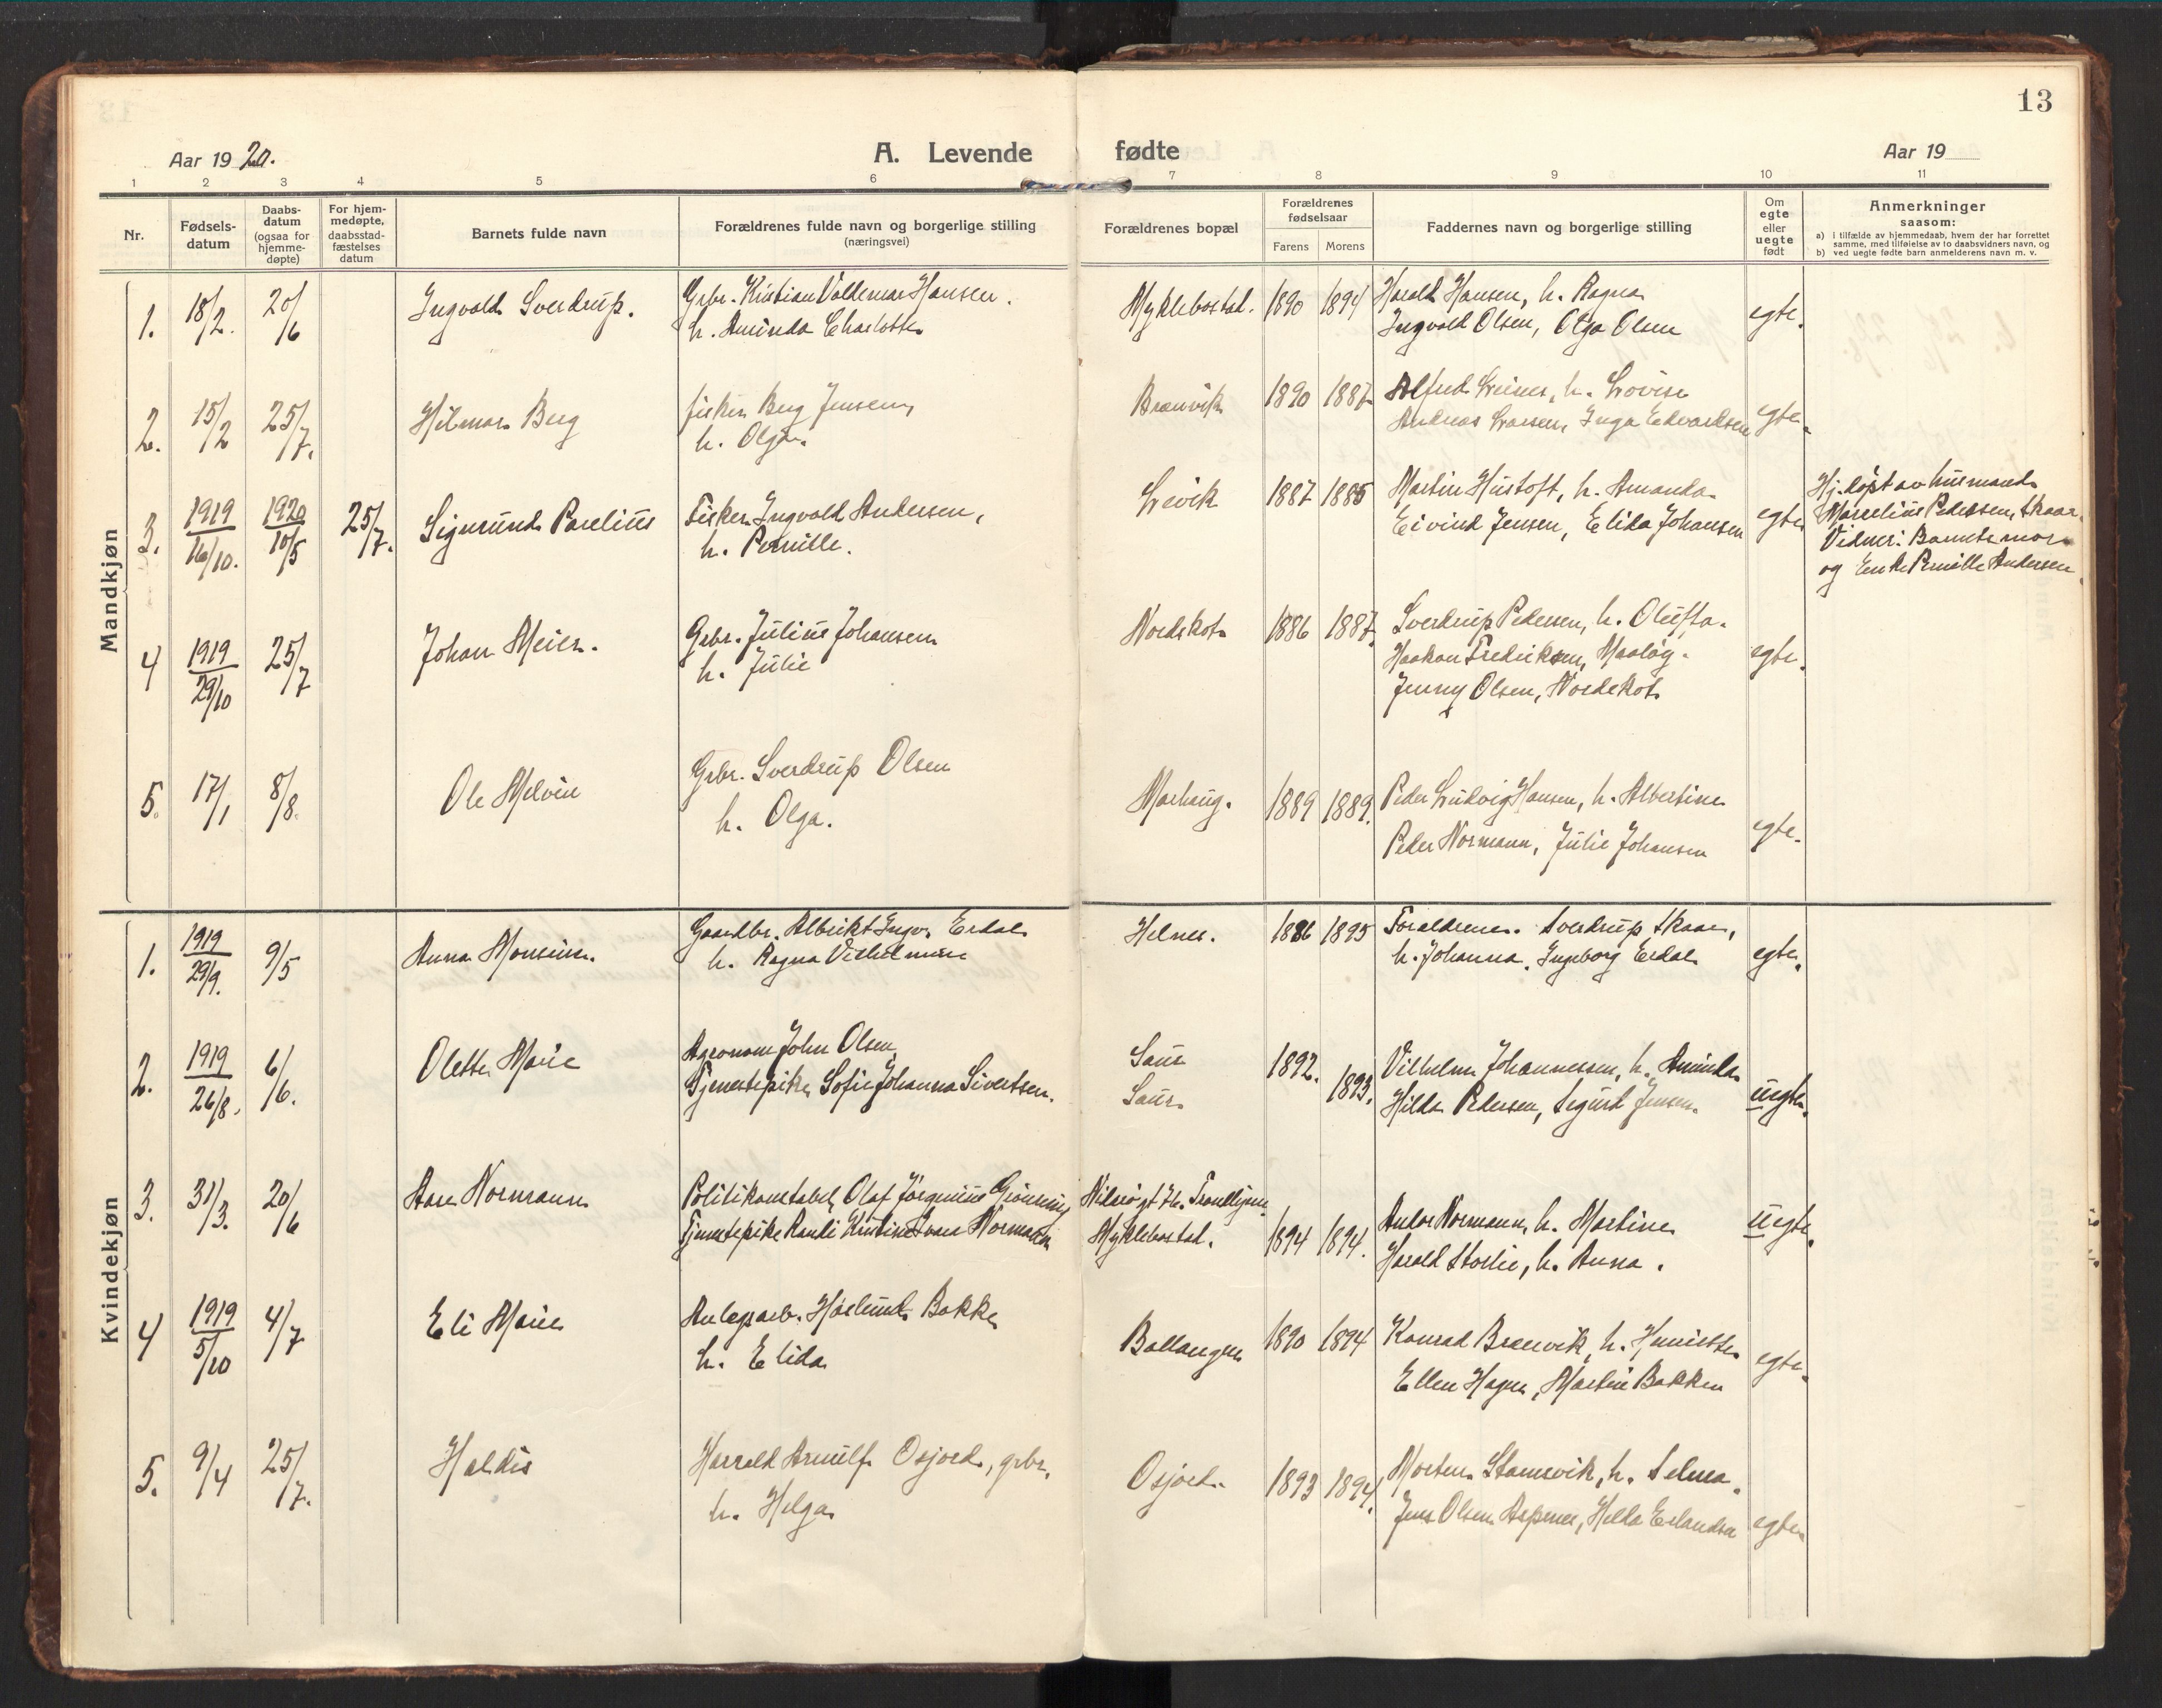 13
Aar 1920.
A. Levende fødte
Aar 19
1 2 3 4 5 6 7 8 9 10 11
Nr.
Fødsels-
datum
Daabs-
datum
(ogsaa for
hjemme-
døpte)
For hjem-
medøpte,
daabsstad-
fæstelses
datum
Barnets fulde navn
Forældrenes fulde navn og borgerlige stilling
(næringsvei)
Forældrenes bopæl
Forældrenes
fødselsaar
Farens Morens
Faddernes navn og borgerlige stilling
Om
egte
eller
uegte
født
Anmerkninger
saasom:
a) i tilfælde av hjemmedaab, hvem der har forrettet
samme, med tilføielse av to daabsvidners navn, og
b) ved uegte fødte barn anmelderens navn m. v.
Mandkjøn
1. 18/2. 20/6 Ingvald Sverdrup. Grbr. Kristian Valdemar Hansen. Myklebostad. 1890 1894 Harald Hansen, h. Ragna egte.
h. Aminda Charlotte Ingvald Olsen, Olga Olsen
2. 15/2 25/7. Hilmar Berg fisker Berg Jensen, Brænvik 1890 1887 Alfred h. Lovise egte.
h. Olga. Andreas Larsen, Inga Edvardsen
3. 1919 16/10. 1920 10/5 25/7. Sigmund Parelius Fisker Ingvald Andersen, Levik 1887 1885 Martin Hustoft, h. Amanda egte
h. Pernille. Eivind Jensen, Elida Johansen
Hj. døpt av husmand
Marselius Pedersen, Skaar.
Vidner: Barnets mor
og Enke Pernille Andersen
4 1919 29/10 25/7 Johan Meier. Grbr. Julius Johansen Nordskot 1886 1887. Sverdrup Pedersen, h. Olufta. egte.
h. Julie Haakon Fredriksen, Maaløy.
Jenny Olsen, Nordskot
5. 17/1 8/8. Ole Melvin Grbr. Sverdrup Olsen Marhaug. 1889 1889. Peder Ludvig Hansen, h. Albertine egte.
h. Olga. Peder Normann, Julie Johansen
Kvindekjøn
1. 1919 29/9. 9/5 Anna Monsine. Gaardbr. Albrikt Ingv. Erdal Helnes. 1886 1895 Forældrene. Sverdrup Skaar, egte.
h. Ragna Vilhelmine h. Johanna. Ingeborg Erdal
2. 1919 26/8. 6/6. Olette Marie Agronom John Olsen Saur 1892. Vilhelm Johannessen, h. Aminda uegte.
Tjenestepike Sofie Johanna Sivertsen. Saur 1893. Hilda Pedersen, Sigurd Jensen.
3. 31/3. 20/6 Aase Normann Politikonstabel Olaf Jørginius Grønning Trondhjem
Tjenestepike Randi Kristine Normann Myklebostad. 1894 1894. Andor Normann, h. Martine uegte.
Harald Storlie, h. Anna.
4 1919 5/10 4/7 Eli Marie Anlegsarb. Hjelmund Bakke Ballangen 1890 1894 Konrad Brænvik, h. egte.
h. Elida Ellen Hagen, Martin Bakken
5. 9/4 25/7. Haldis Harrald Arnulf Osjord, grbr. Osjord. 1893 1894. Morten Stamsvik, h. Selma. egte
h. Helga Jens Olsen Aspenes, Hilda Erlandsen